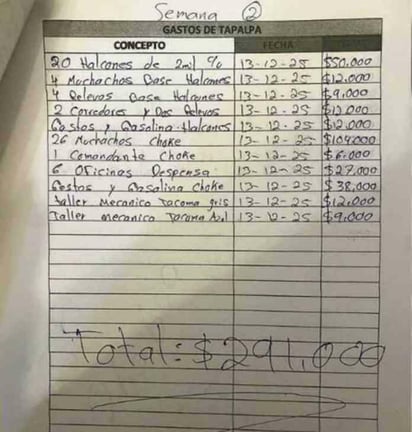 Semana ②
GASTOS DE TAPALPA
CONCEPTO FECHA
20 Halcones de 2mil % 13-12-25 $50,000
4 Muchachos Base Halcones 13-12-25 $12,000
4 Relevos Base Halcones 13-12-25 $9,000
2 Corredores y Dos Relevos 13-12-25
Gastos y Gasolina Halcones 13-12-25 $12,000
26 Muchachos Choke 13-12-25 $104,000
1 Comandante Choke 13-12-25 $6,000
6 Oficinas Despensa 13-12-25 $27,000
Gastos y Gasolina Choke 13-12-25 $38,000
Taller Mecanico Tacoma gris 13-12-25 $12,000
Taller mecanico Tacoma Azul 13-12-25 $9,000
Total: $291,000